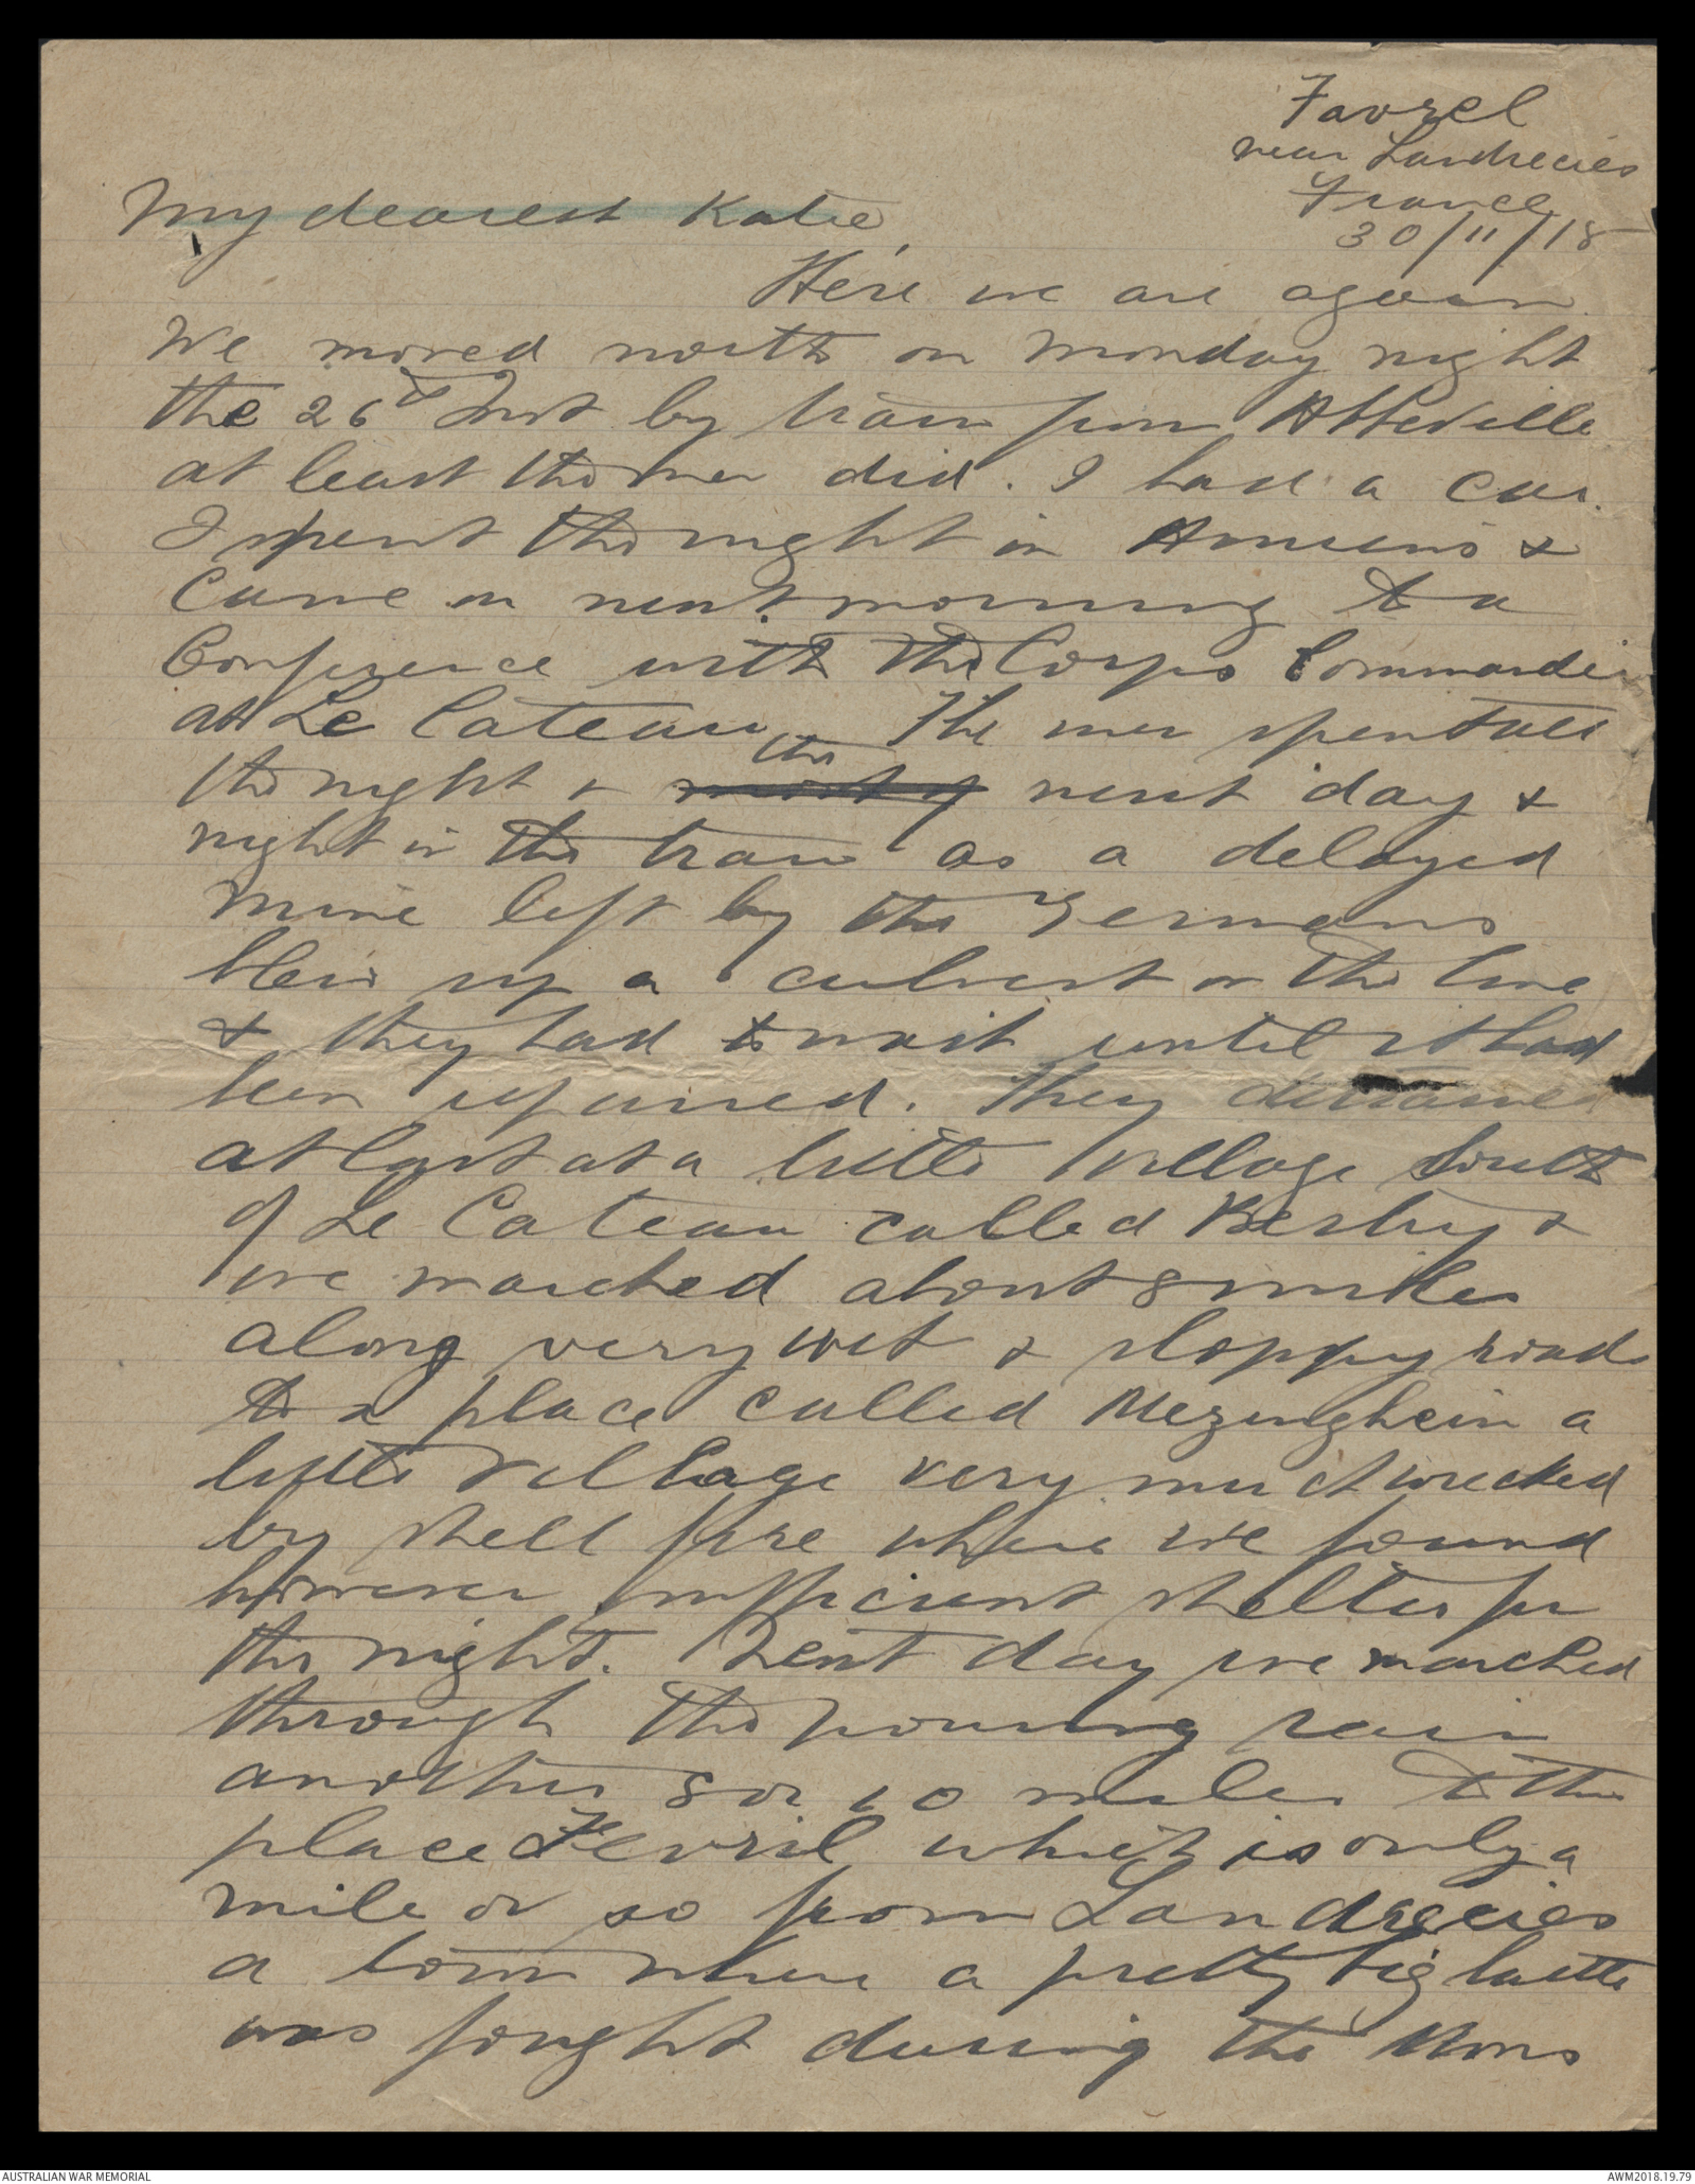 Favrel
near Landrecies
France
30/11/18
My dearest Katie,
Here we are again.
We moved north on Monday night
the 26th Inst by train from Abbeville
at least the men did. I had a car.
I spent the night in Amiens &
came on next morning to a
Conference with the Corps Commander
at Le Cateau. The men spent all
the night & the next day &
night in the train as a delayed
mine left by the Germans
blew up a culvert on the line
& they had to wait until it had
been repaired. They detrained
at last at a little village South
of Le Cateau called &
we marched about 8 miles
along very wet & sloppy roads
to a place called Mezinghein a
little village very much wrecked
by shell fire where we found
however sufficient shelter for
the night. Next day we marched
through the pouring rain
another 8 or 10 miles to this
place Fevril which is only a
mile or so from Landrecies
a town where a pretty big battle
was fought during the Mons
AUSTRALIAN WAR MEMORIAL
AWM2018.19.79